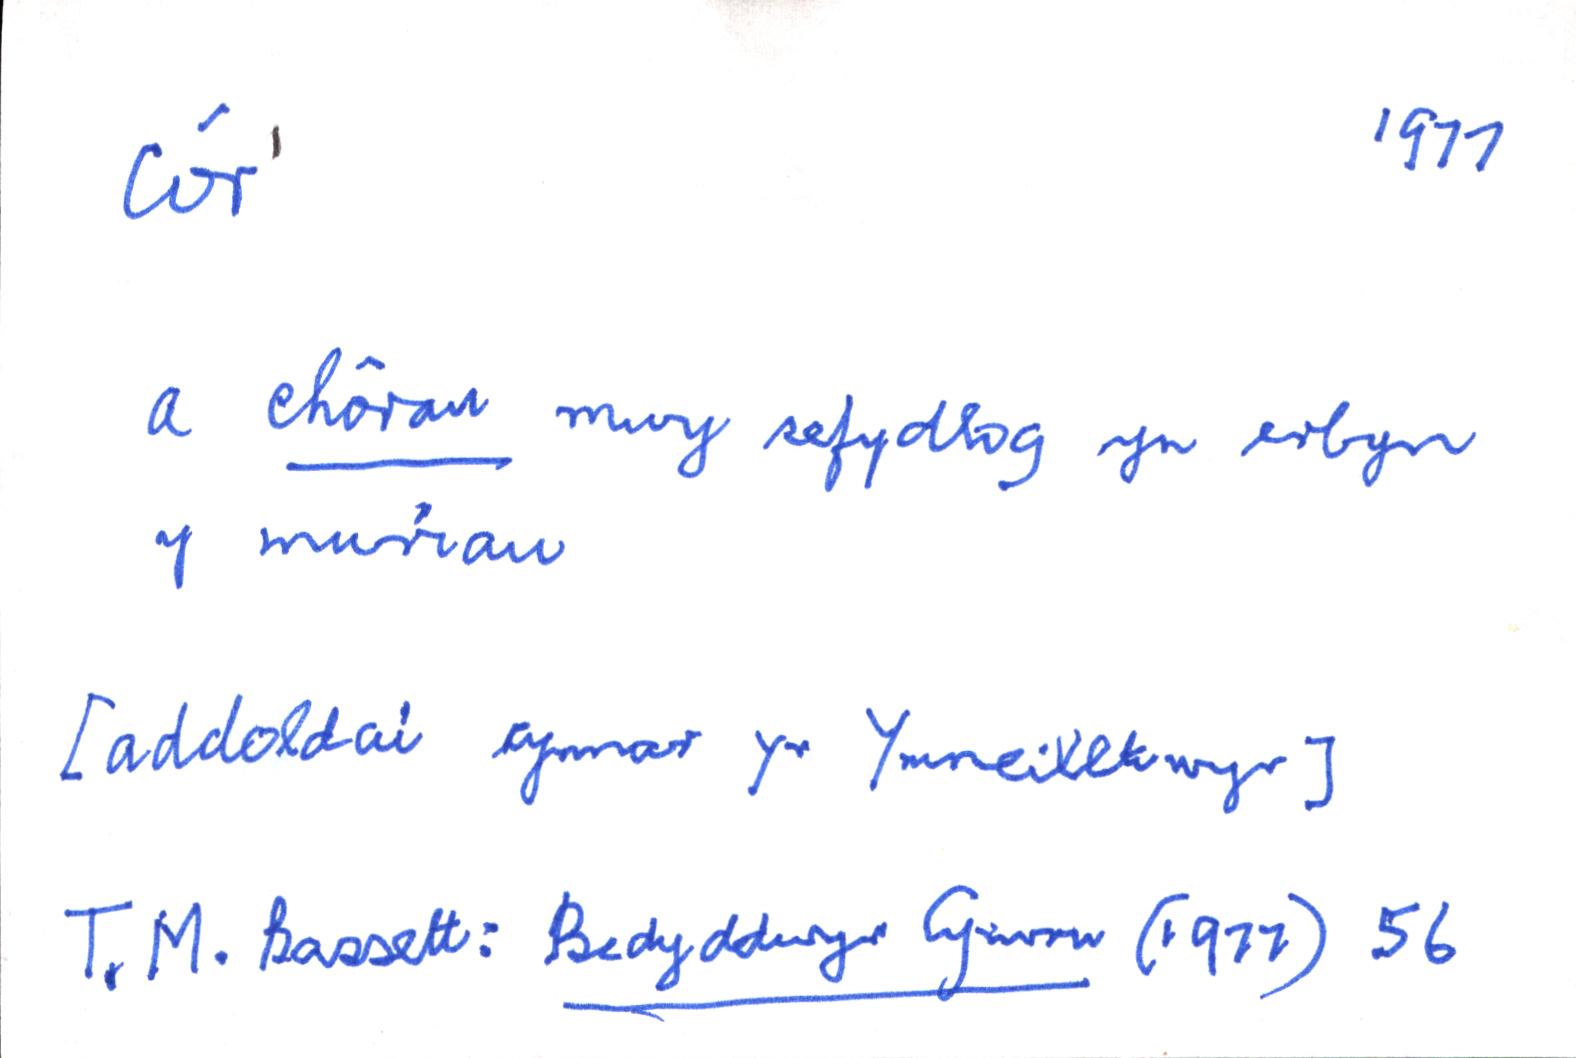 Côr¹ 1977
a chôrau mwy sefydlog yn erbyn
y muriau
[addoldai cynnar yr Ymneilltuwyr]
T. M. Bassett: Bedyddwyr Cymru (1977) 56